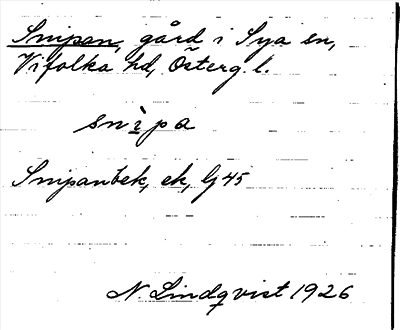 Snipan, gård i Sya sn,
Vifolka hd, Österg. l.
snìpa
Snipanbek, ek, lj 45
N. Lindqvist 1926